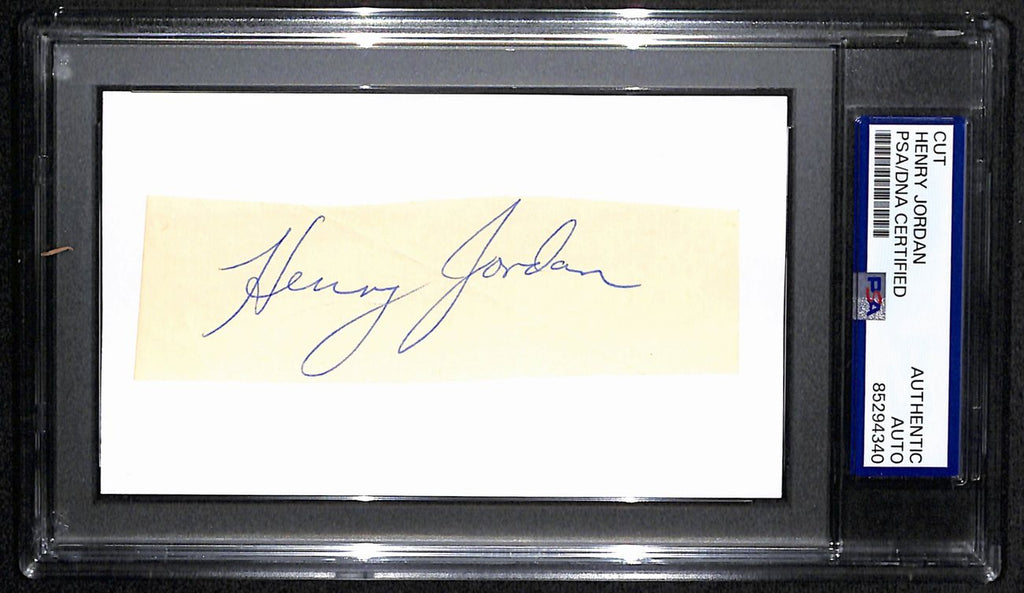 Henry Jordan
CUT
HENRY JORDAN
PSA/DNA CERTIFIED
PSA
AUTHENTIC
AUTO
85294340